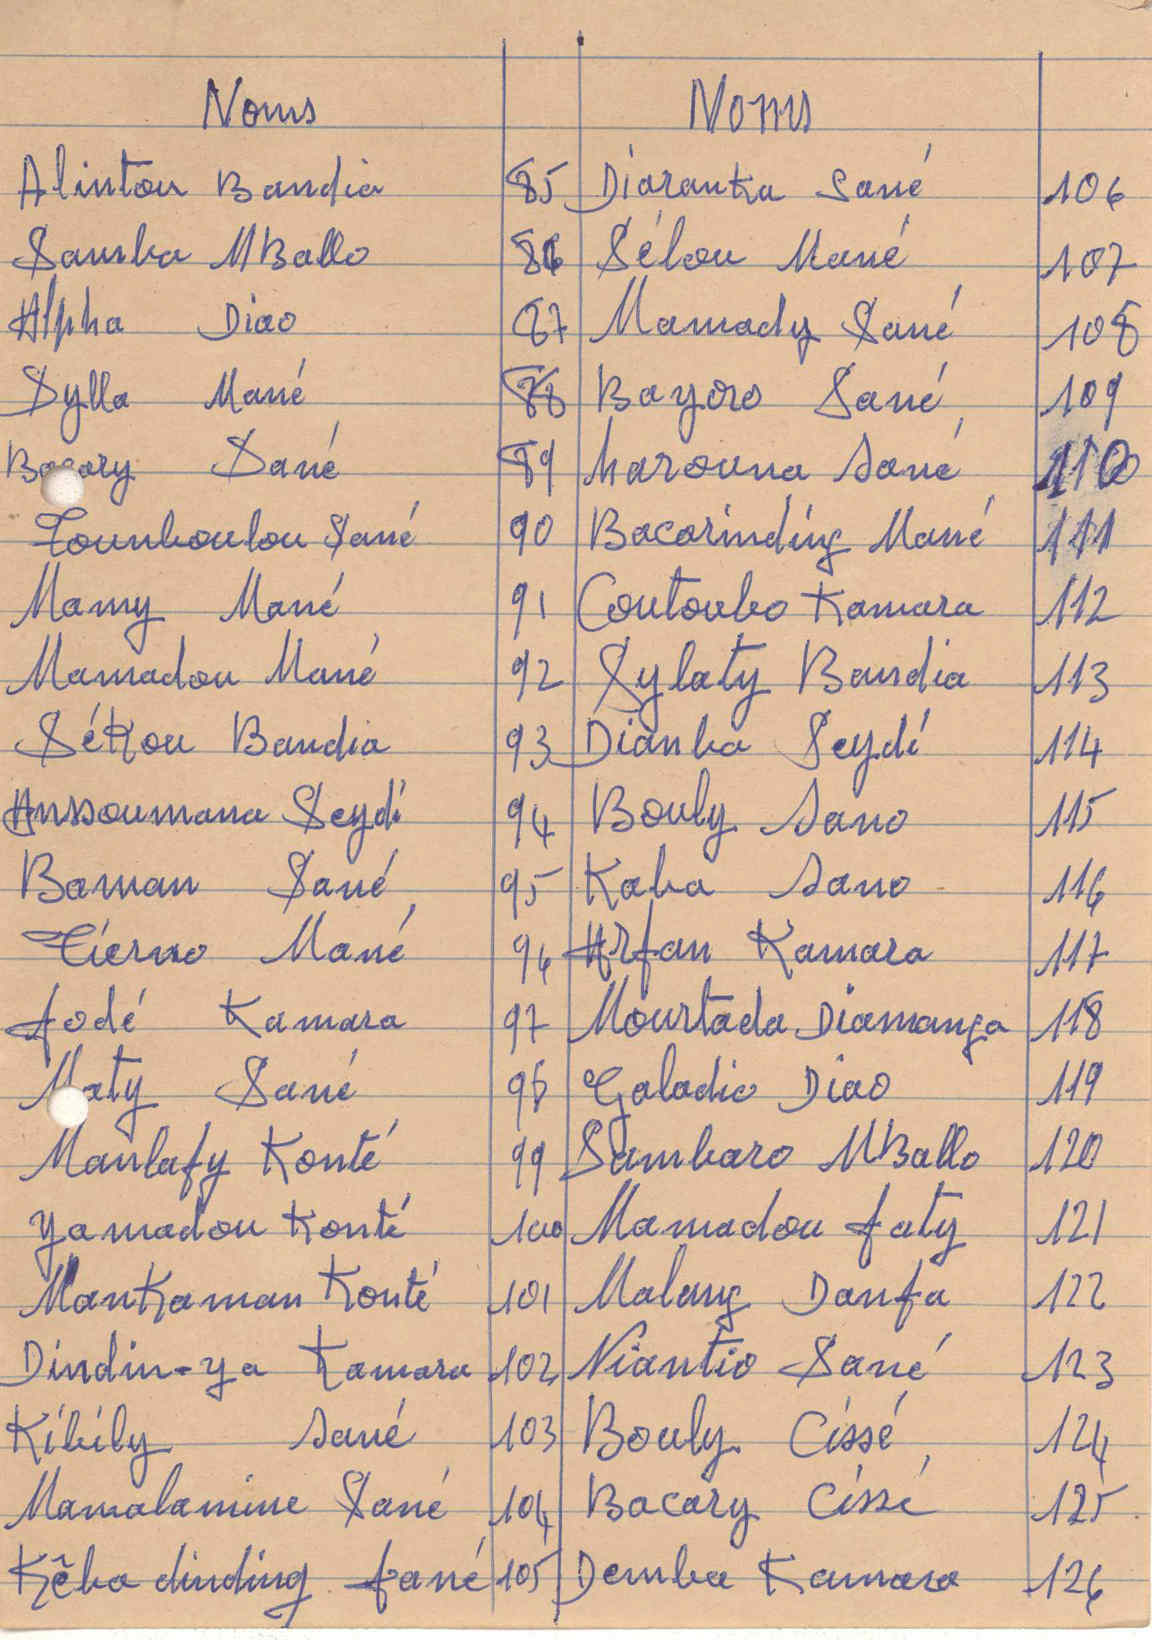 Noms Noms
Alintou Bandia 85 Diaranka Sané 106
Samba MBallo 86 Sékou Mané 107
Alpha Diao 87 Mamady Sané 108
Sylla Mané 88 Bayoro Sané 109
Bacary Sané 89 Marouna Sané 110
Toumboulou Sané 90 Bacarinding Mané 111
Mamy Mané 91 Coutoubo Kamara 112
Mamadou Mané 92 Sylaty Bandia 113
Sékou Bandia 93 Dianba Seydi 114
Ansoumana Seydi 94 Bouly Sano 115
Baman Sané 95 Kaba Sano 116
Tierno Mané 96 Arfan Kamara 117
fodé Kamara 97 Mourtada Diamanga 118
Maty Sané 98 Galadio Diao 119
Manlafy Konté 99 Sambaro MBallo 120
Yamadou Konté 100 Mamadou faty 121
Mankaman Konté 101 Malang Danfa 122
Dindin-ya Kamara 102 Niantio Sané 123
Kibily Sané 103 Bouly Cissé 124
Mamalamine Sané 104 Bacary Cissé 125
Kêba dinding fané 105 Demba Kamara 126